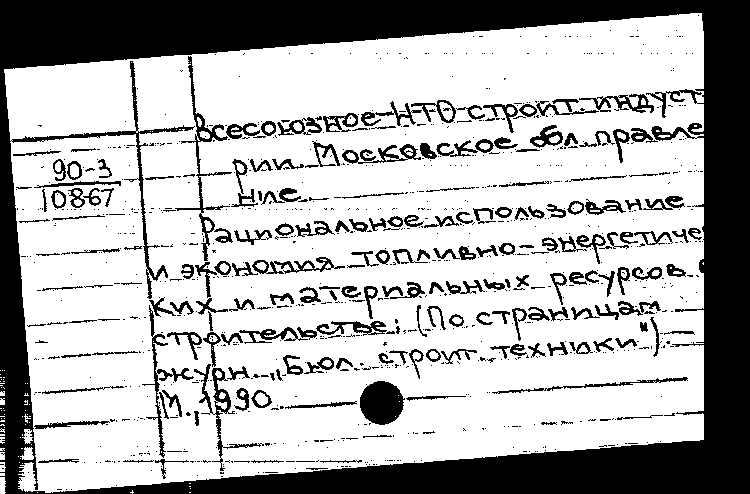 Всесоюзное НТО строит. индуст
рии. Московское обл. правле
ние.
90-3
10867
Рациональное использование
и экономия топливно-энергетичес
ких и материальных ресурсов в
строительстве: (По страницам
журн. „Бюл. строит. техники").-
М., 1990